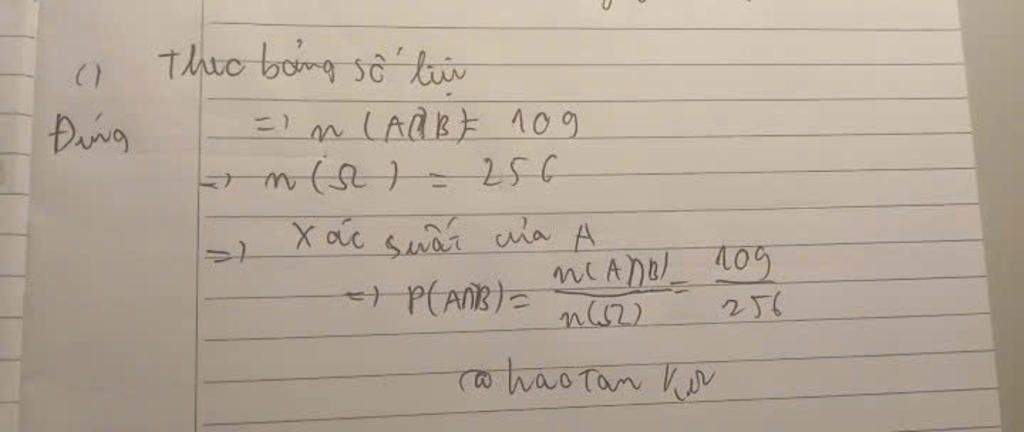 c) Theo bảng số liệu
Đúng => n(A∩B) = 109
=> n(Ω) = 256
=> Xác suất của A
=> P(A∩B) = n(A∩B) / n(Ω) = 109 / 256
@haotan